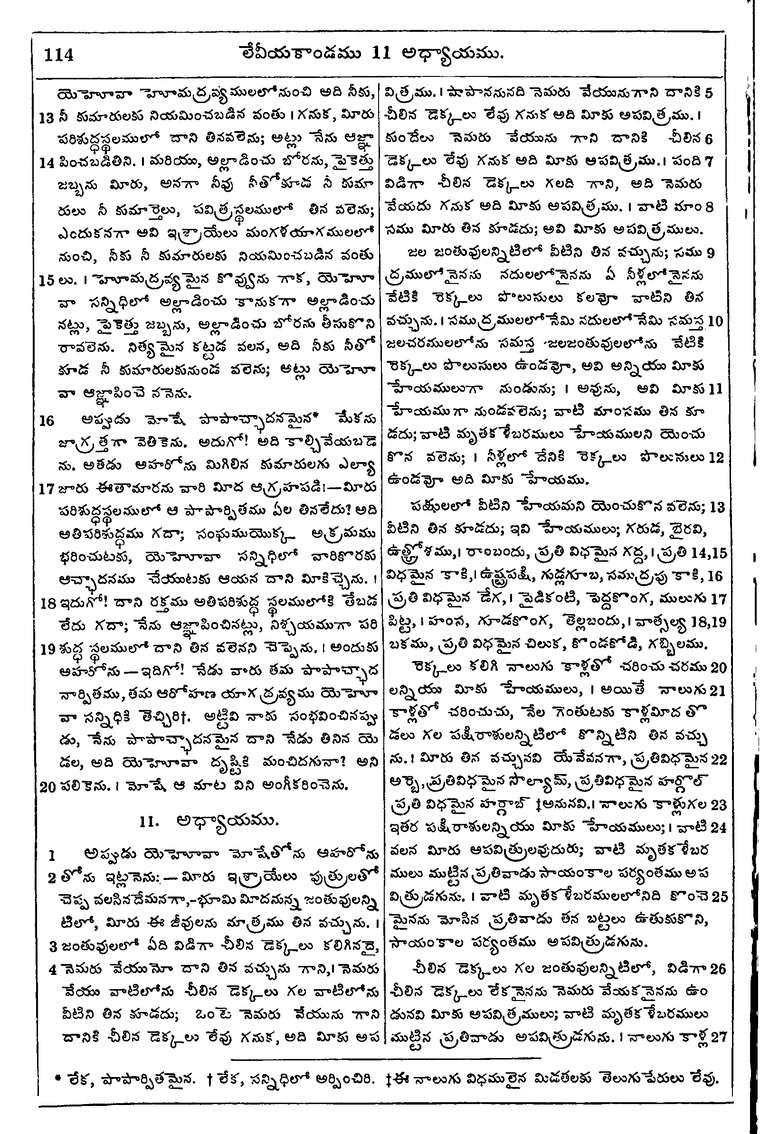 114 లేవీయకాండము 11 అధ్యాయము.
యెహోవా హోమద్రవ్యములలోనుంచి అది నీకు,
13 నీ కుమారులకు నియమించబడిన వంతు । గనుక, మీరు
పరిశుద్ధస్థలములో దాని తినవలెను; అట్లు నేను ఆజ్ఞా
14 పించబడితిని. । మరియు, అల్లాడించు బోరను, పైకెత్తు
జబ్బను మీరు, అనగా నీవు నీతోకూడ నీ కుమా
రులు నీ కుమార్తెలు, పవిత్రస్థలములో తిన వలెను;
ఎందుకనగా అవి ఇశ్రాయేలు మంగళయాగములలో
నుంచి, నీకు నీ కుమారులకు నియమించబడిన వంతు
15 లు. । హోమద్రవ్యమైన కొవ్వును గాక, యెహో
వా సన్నిధిలో అల్లాడించు కానుకగా అల్లాడించు
నట్లు, పైకెత్తు జబ్బను, అల్లాడించు బోరను తీసుకొని
రావలెను. నిత్యమైన కట్టడ వలన, అది నీకు నీతో
కూడ నీ కుమారులకునుండ వలెను; అట్లు యెహో
వా ఆజ్ఞాపించె ననెను.
16 అప్పుడు మోషే పాపాచ్ఛాదనమైన* మేకను
జాగ్రత్తగా వెతికెను. అదుగో! అది కాల్చివేయబడె
ను. అతడు అహరోను మిగిలిన కుమారులగు ఎల్యా
17 జారు ఈతామారను వారి మీద ఆగ్రహపడి।—మీరు
పరిశుద్ధస్థలములో ఆ పాపార్పితము ఏల తినలేదు? అది
అతిపరిశుద్ధము గదా; సంఘముయొక్క అక్రమము
భరించుటకు, యెహోవా సన్నిధిలో వారికొరకు
ఆచ్ఛాదనము చేయుటకు ఆయన దాని మీకిచ్చెను. ।
18 ఇదుగో! దాని రక్తము అతిపరిశుద్ధ స్థలములోకి తేబడ
లేదు గదా; నేను ఆజ్ఞాపించినట్లు, నిశ్చయముగా పరి
19 శుద్ధ స్థలములో దాని తిన వలెనని చెప్పెను. । అందుకు
అహరోను—ఇదిగో! నేడు వారు తమ పాపాచ్ఛాద
నార్పితము, తమ ఆరోహణ యాగద్రవ్యము యెహో
వా సన్నిధికి తెచ్చిరి†. అట్టివి నాకు సంభవించినప్పు
డు, నేను పాపాచ్ఛాదనమైన దాని నేడు తినిన యె
డల, అది యెహోవా దృష్టికి మంచిదగునా? అని
20 పలికెను. । మోషే ఆ మాట విని అంగీకరించెను.
11. అధ్యాయము.
1 అప్పుడు యెహోవా మోషేతోను అహరోను
2 తోను ఇట్లనెను:—మీరు ఇశ్రాయేలు పుత్రులతో
చెప్ప వలసినదేమనగా,-భూమి మీదనున్న జంతువులన్ని
టిలో, మీరు ఈ జీవులను మాత్రము తిన వచ్చును. ।
3 జంతువులలో ఏది విడిగా చీలిన డెక్కలు కలిగినదై,
4 నెమరు వేయునో దాని తిన వచ్చును గాని,। నెమరు
వేయు వాటిలోను చీలిన డెక్కలు గల వాటిలోను
వీటిని తిన కూడదు; ఒంటె నెమరు వేయును గాని
దానికి చీలిన డెక్కలు లేవు గనుక, అది మీకు అప
విత్రము. । పొపాననునది నెమరు వేయునుగాని దానికి 5
చీలిన డెక్కలు లేవు గనుక అది మీకు అపవిత్రము. ।
కుందేలు నెమరు వేయును గాని దానికి చీలిన 6
డెక్కలు లేవు గనుక అది మీకు అపవిత్రము. । పంది 7
విడిగా చీలిన డెక్కలు గలది గాని, అది నెమరు
వేయదు గనుక అది మీకు అపవిత్రము. । వాటి మాం 8
సము మీరు తిన కూడదు; అవి మీకు అపవిత్రములు.
జల జంతువులన్నిటిలో వీటిని తిన వచ్చును; సము 9
ద్రములోనైనను నదులలోనైనను ఏ నీళ్లలోనైనను
వేటికి రెక్కలు పొలుసులు కలవో వాటిని తిన
వచ్చును. । సముద్రములలోనేమి నదులలోనేమి సమస్త 10
జలచరములలోను సమస్త జలజంతువులలోను వేటికి
రెక్కలు పొలుసులు ఉండవో, అవి అన్నియు మీకు
హేయములుగా నుండును; । అవును, అవి మీకు 11
హేయముగా నుండవలెను; వాటి మాంసము తిన కూ
డదు; వాటి మృతకళేబరములు హేయములని యెంచు
కొన వలెను; । నీళ్లలో దేనికి రెక్కలు పొలుసులు 12
ఉండవో అది మీకు హేయము.
పక్షులలో వీటిని హేయమని యెంచుకొన వలెను; 13
వీటిని తిన కూడదు; ఇవి హేయములు; గరుడ, బైరవి,
ఉత్క్రోశము,। రాంబందు, ప్రతి విధమైన గద్ద, । ప్రతి 14,15
విధమైన కాకి,। ఉష్ట్రపక్షి, గుడ్లగూబ, సముద్రపు కాకి, 16
ప్రతి విధమైన డేగ, । పైడికంటి, పెద్దకొంగ, ములుగు 17
పిట్ట, । హంస, గూడకొంగ, తెల్లబందు, । వాత్సల్య 18,19
బకము, ప్రతి విధమైన చిలుక, కొండకోడి, గబ్బిలము.
రెక్కలు కలిగి నాలుగు కాళ్లతో చరించు చరము 20
లన్నియు మీకు హేయములు, । అయితే నాలుగు 21
కాళ్లతో చరించుచు, నేల గెంతుటకు కాళ్లమీద తొ
డలు గల పక్షిరాశులన్నిటిలో కొన్నిటిని తిన వచ్చు
ను. । మీరు తిన వచ్చునవి యేవేవనగా, ప్రతివిధమైన 22
అర్బె, ప్రతివిధమైన సొల్యామ్, ప్రతివిధమైన హర్గొల్
ప్రతి విధమైన హర్గాబ్ ‡అనునవి.। నాలుగు కాళ్లుగల 23
ఇతర పక్షిరాశులన్నియు మీకు హేయములు; । వాటి 24
వలన మీరు అపవిత్రులవుదురు; వాటి మృతకళేబర
ములు ముట్టిన ప్రతివాడు సాయంకాల పర్యంతము అప
విత్రుడగును. । వాటి మృతకళేబరములలోనిది కొంచె 25
మైనను మోసిన ప్రతివాడు తన బట్టలు ఉతుకుకొని,
సాయంకాల పర్యంతము అపవిత్రుడగును.
చీలిన డెక్కలు గల జంతువులన్నిటిలో, విడిగా 26
చీలిన డెక్కలు లేకనైనను నెమరు వేయకనైనను ఉం
డునవి మీకు అపవిత్రములు; వాటి మృతకళేబరములు
ముట్టిన ప్రతివాడు అపవిత్రుడగును. । నాలుగు కాళ్ల 27
* లేక, పాపార్పితమైన. † లేక, సన్నిధిలో అర్పించిరి. ‡ఈ నాలుగు విధములైన మిడతలకు తెలుగుపేరులు లేవు.